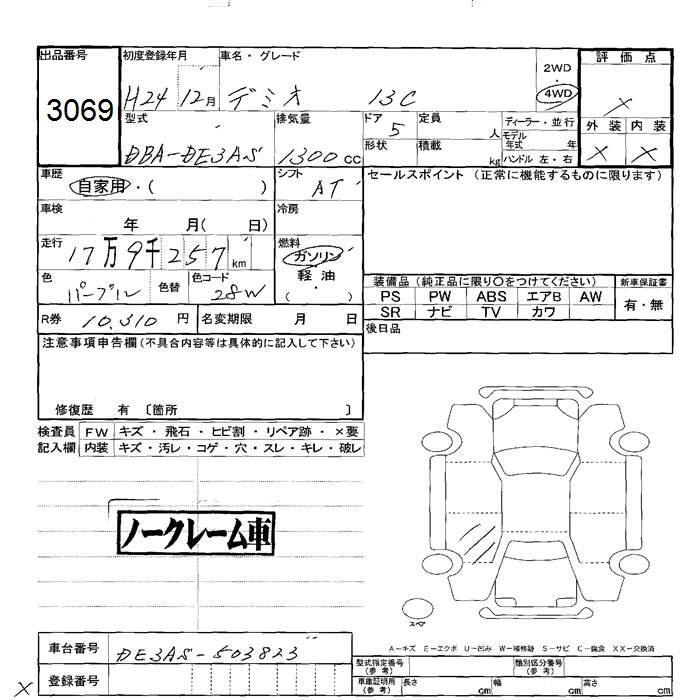 出品番号
3069
初度登録年月
H24 12月
車名・グレード
デミオ 13C
2WD
4WD
評価点
×
外装 内装
× ×
型式
DBA-DE3AS
排気量
1300cc
ドア
5
定員
人
ディーラー・並行
モデル年式 年
形状
積載
kg
ハンドル 左・右
車歴
自家用・( )
シフト
AT
セールスポイント (正常に機能するものに限ります)
車検
年 月( 日)
冷房
走行
17万9千257km
燃料
ガソリン
軽油
( )
色
パープル
色替
色コード
28W
装備品 (純正品に限り○をつけてください)
新車保証書
PS PW ABS エアB AW
有・無
SR ナビ TV カワ
R券 10,310 円
名変期限 月 日
後日品
注意事項申告欄(不具合内容等は具体的に記入して下さい)
修復歴 有 〔箇所 〕
検査員
記入欄
FW キズ・飛石・ヒビ割・リペア跡・×要
内装 キズ・汚レ・コゲ・穴・スレ・キレ・破レ
ノークレーム車
スペア
A－キズ E－エクボ U－凹み W－補修跡 S－サビ C－腐食 XX－交換済
車台番号
DE3AS-503823
登録番号
型式指定番号
(参考)
類別区分番号
(参考)
車庫証明用
(参考)
長さ cm
幅 cm
高さ cm
×